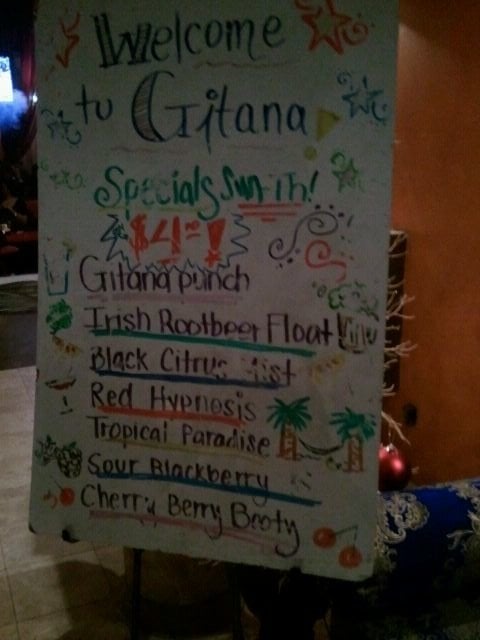 Welcome
to Gitana
Specials Sun-th!
$4= !
Gitana punch
Irish Rootbeer Float
Black Citrus
Red Hypnosis
Tropical Paradise
Sour Blackberry
Cherry Berry Booty